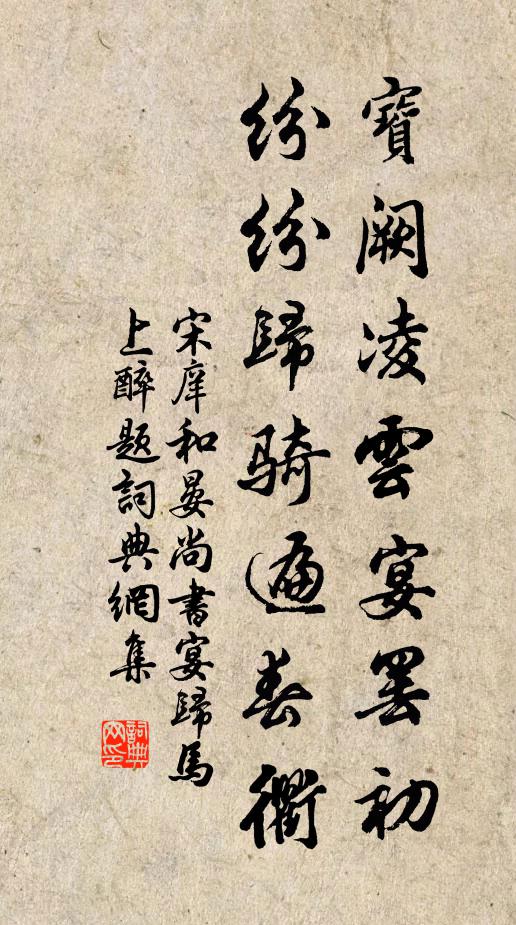 寶闕凌雲宴罷初
紛紛歸騎遍春衢
宋庠和晏尚書宴歸馬
上醉題詞典網集
詞典
网印